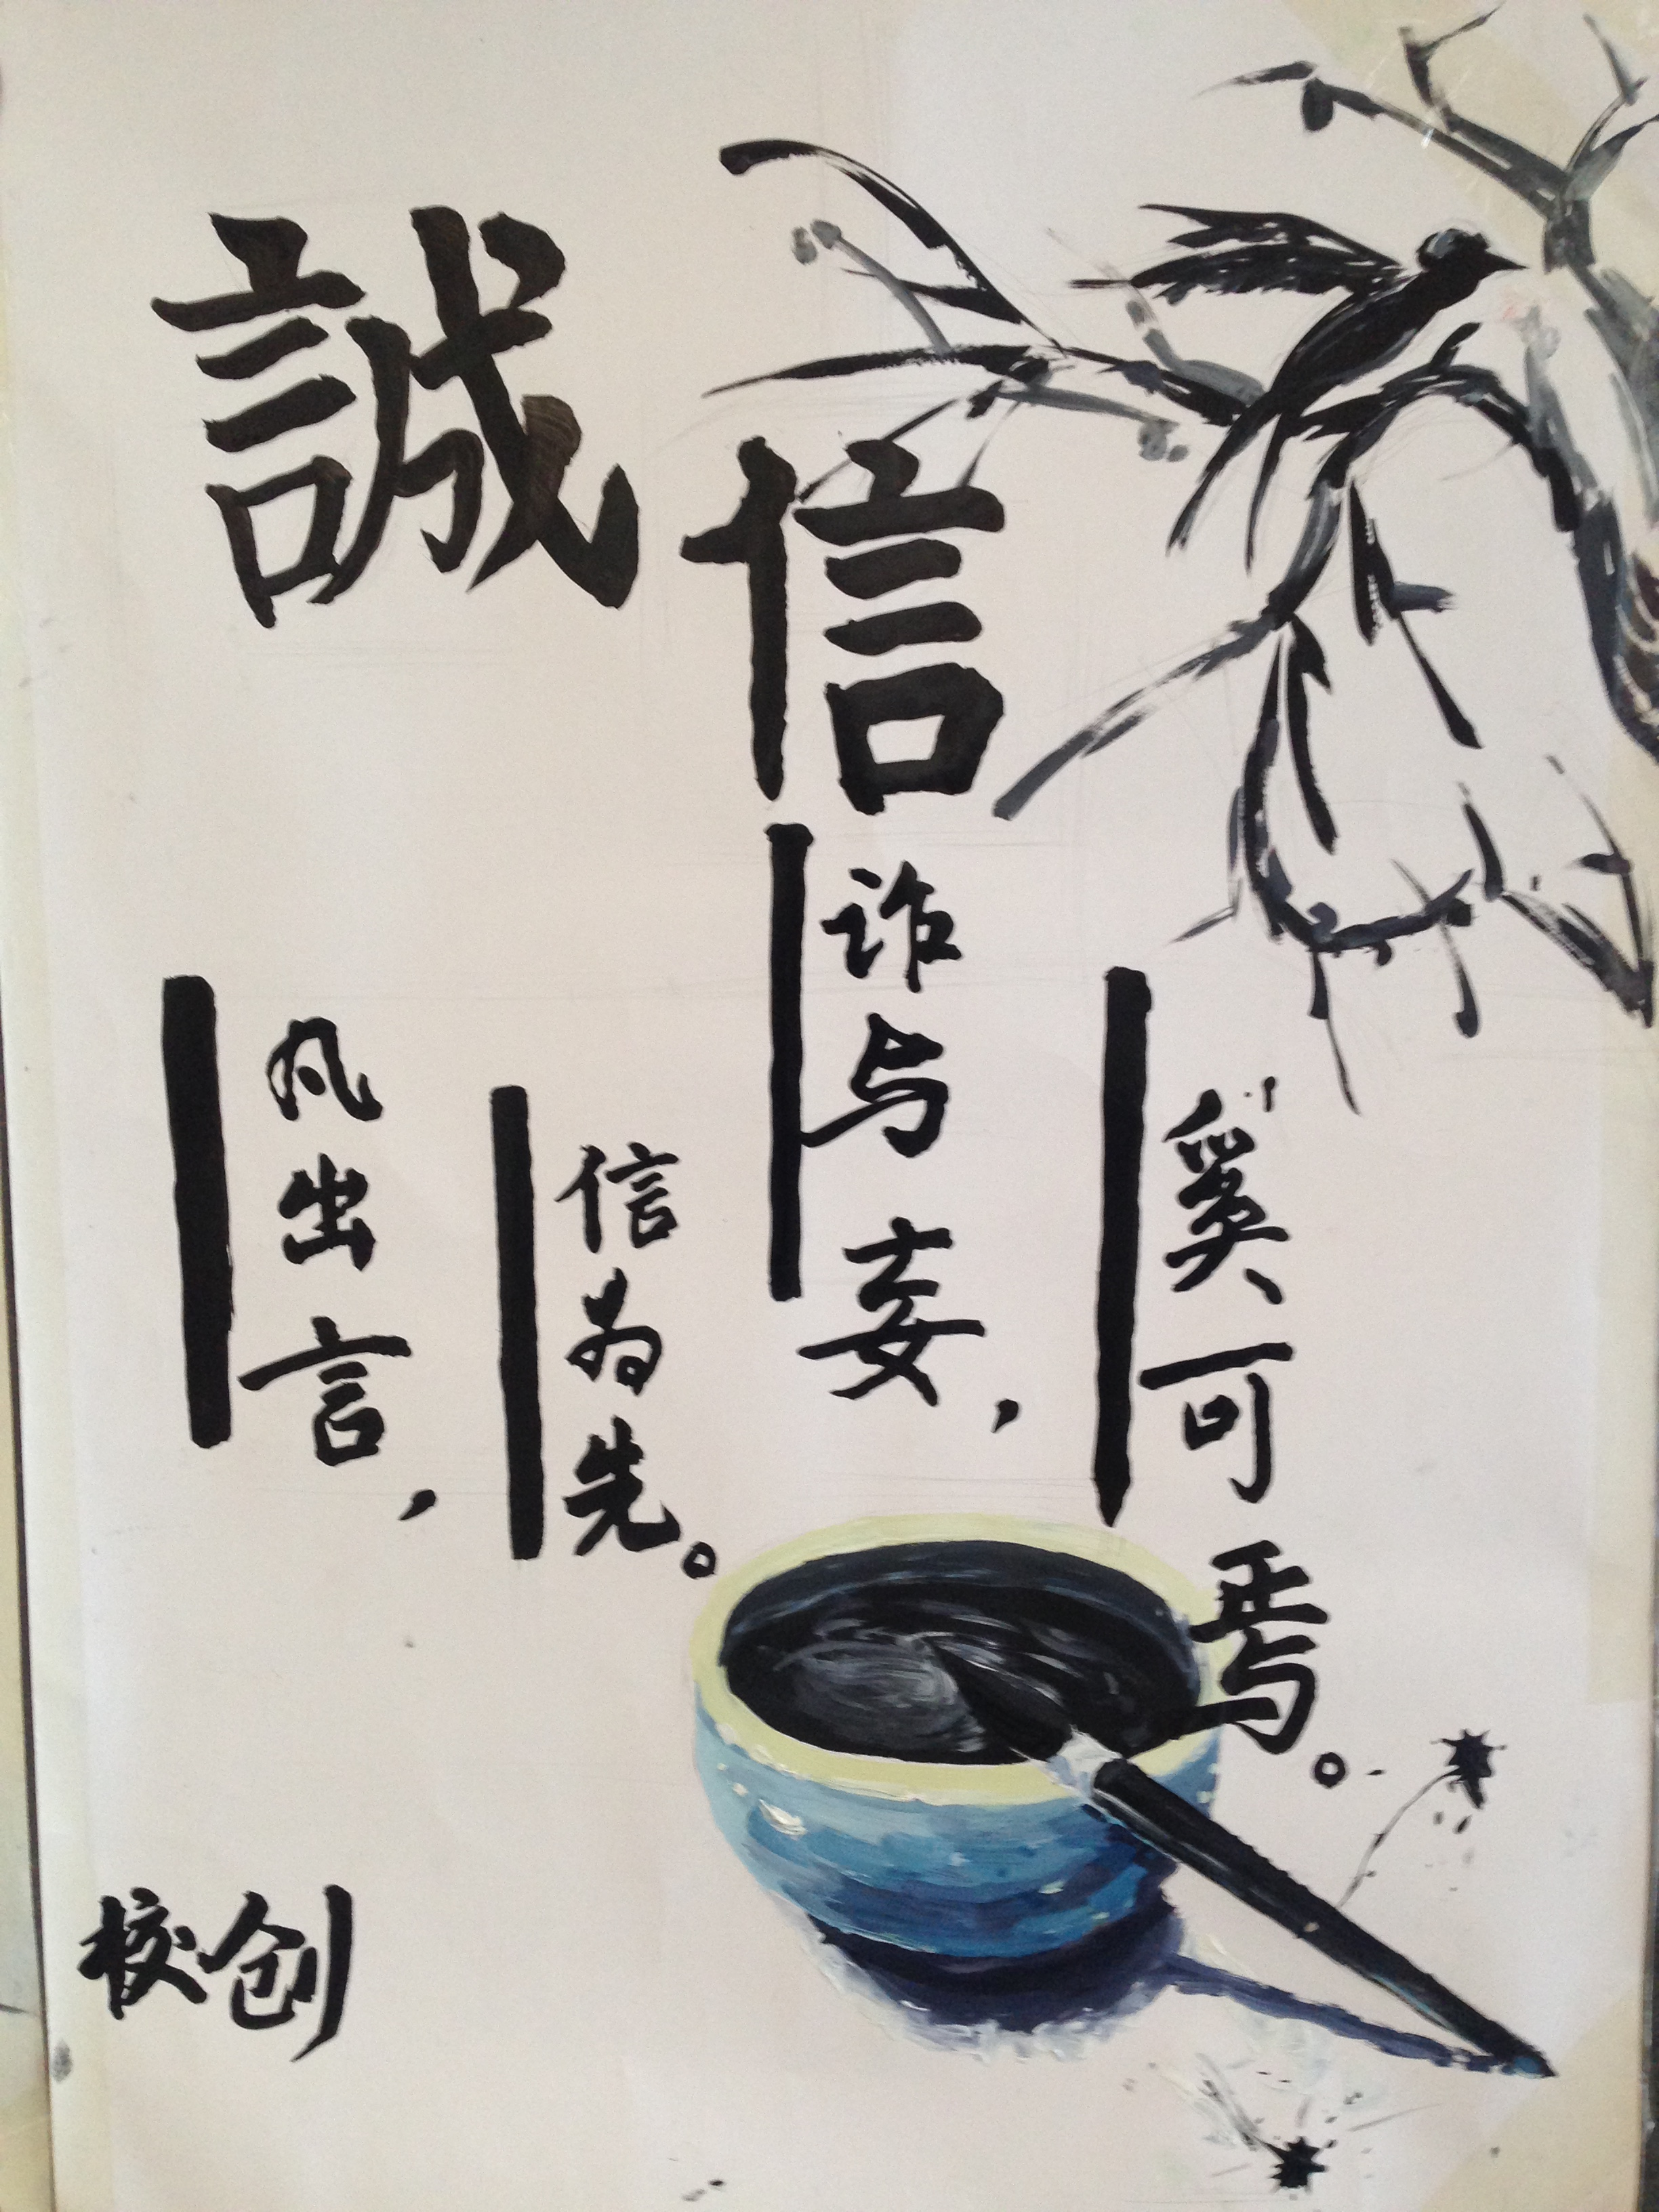 誠信
凡出言，
信为先。
诈与妄，
奚可焉。
校创